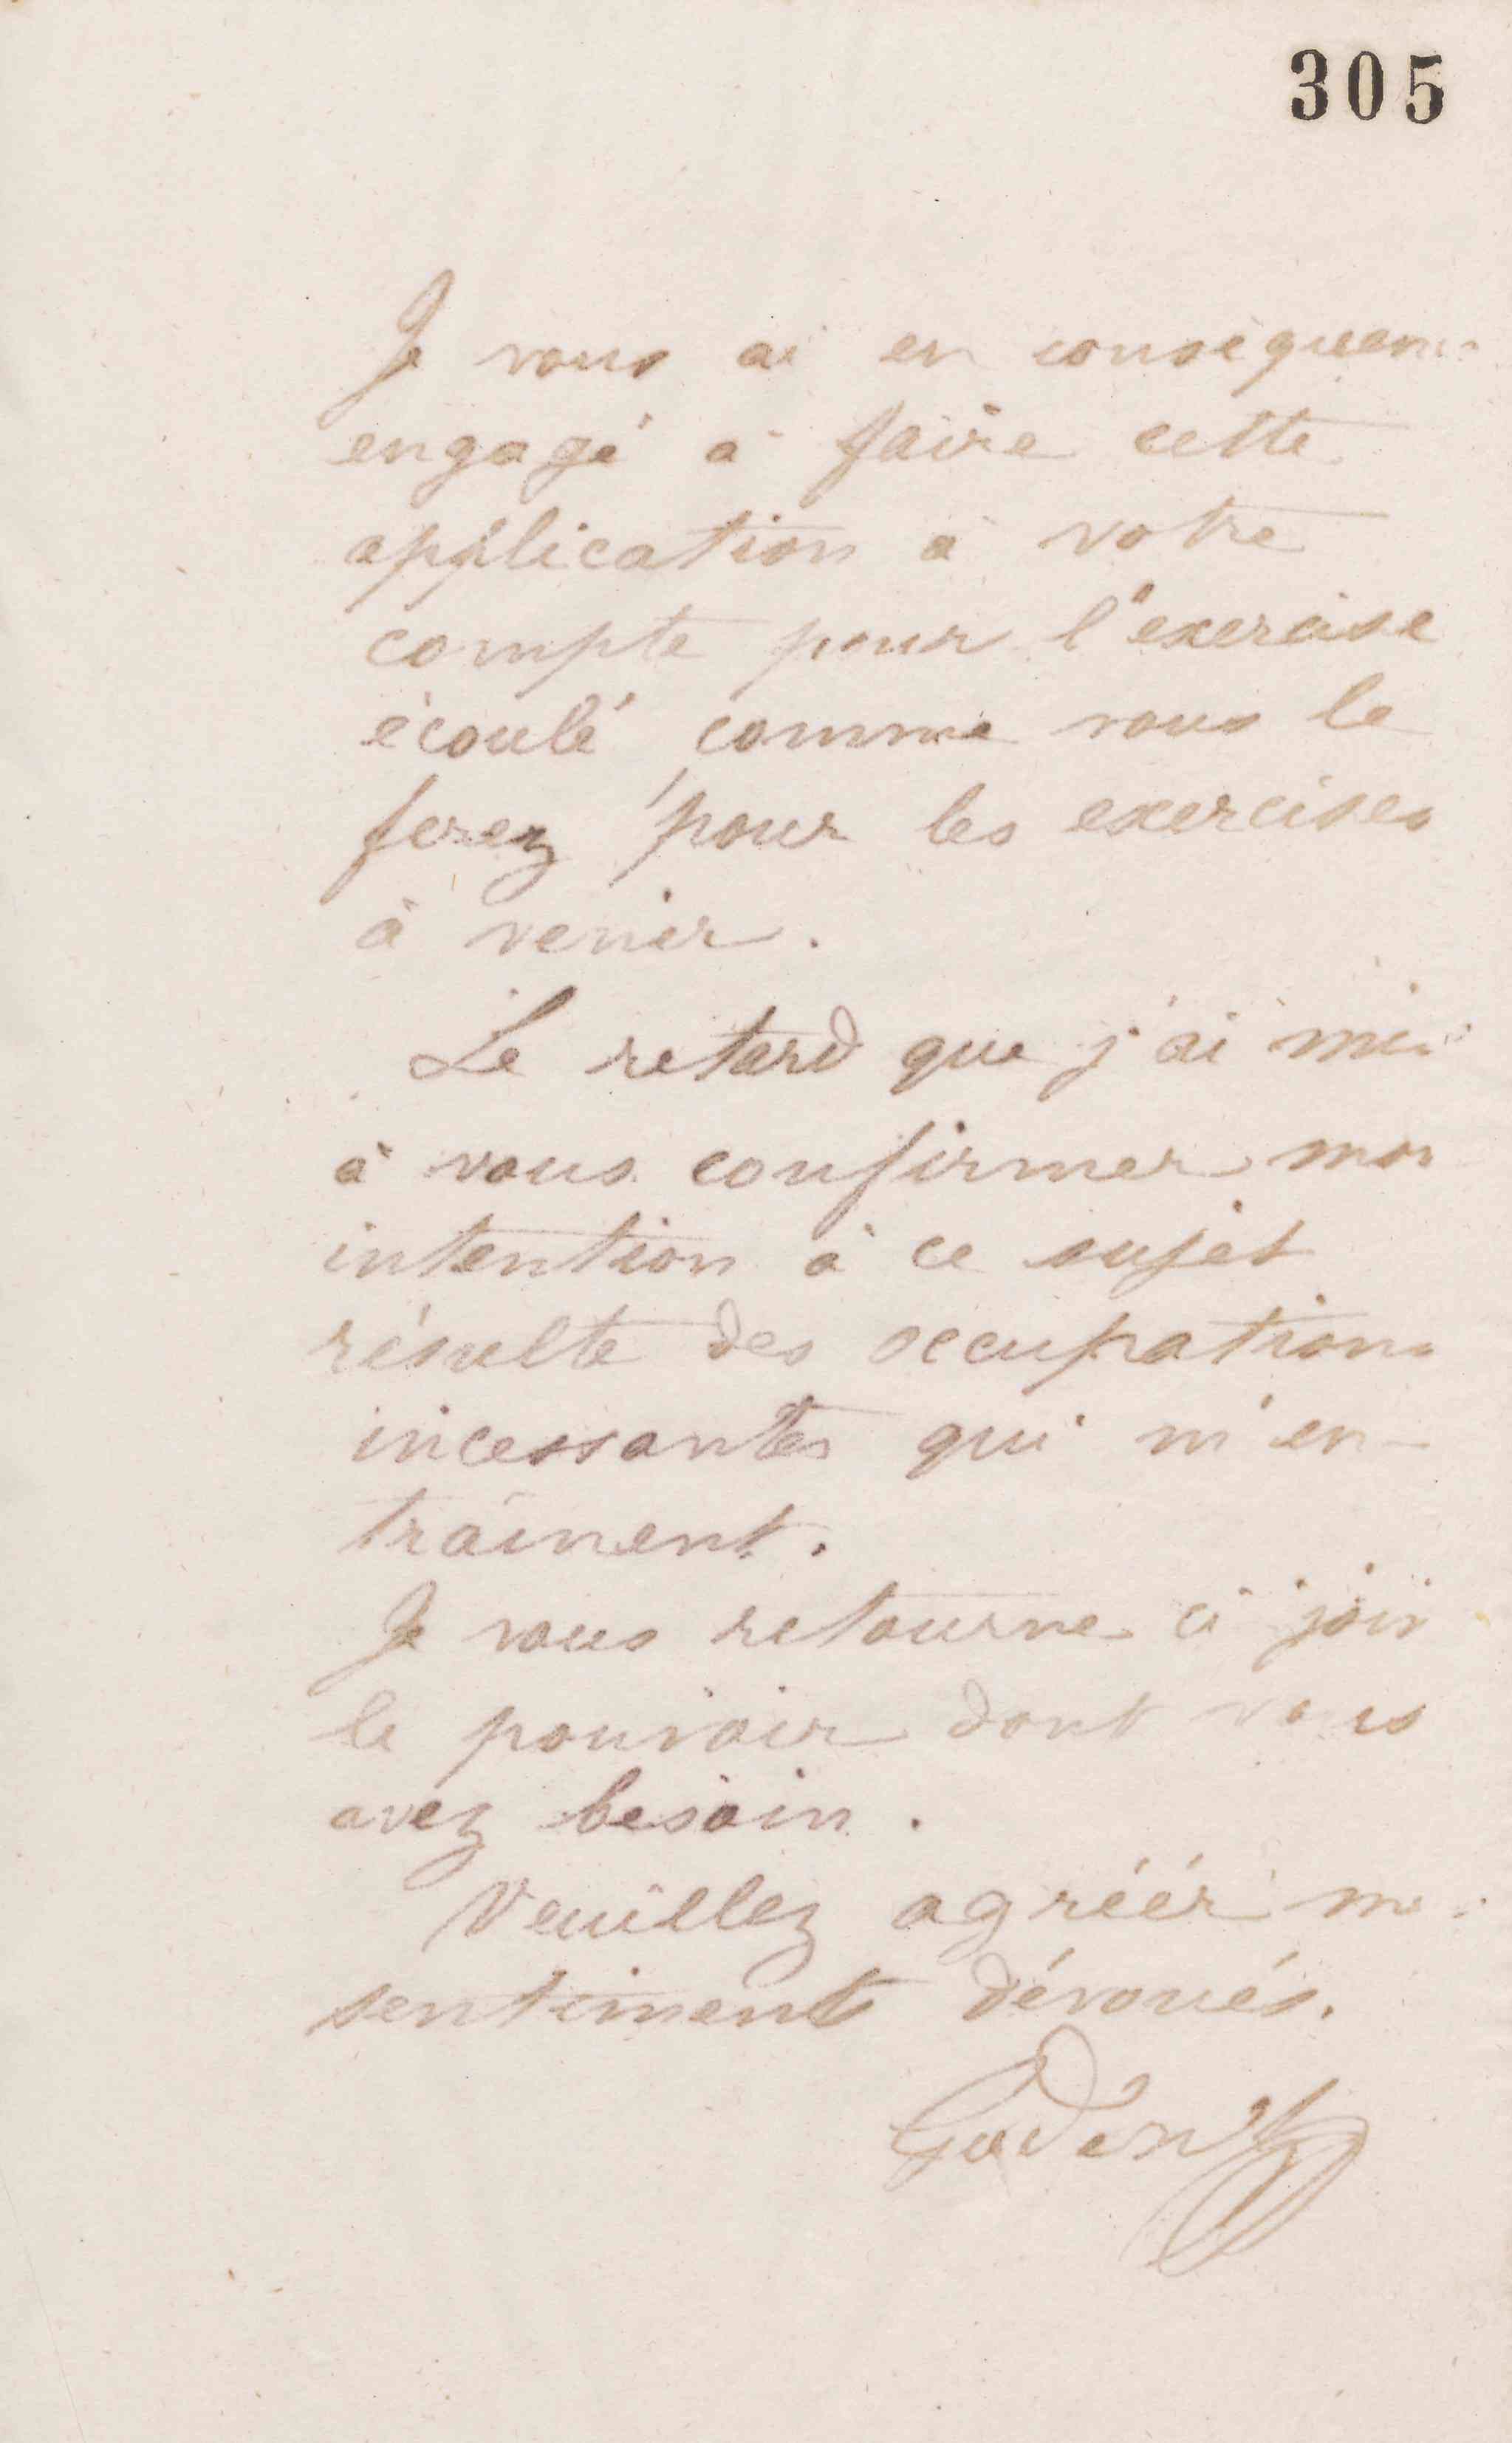 305
Je vous ai en conséquence
engagé à faire cette
application à votre
compte pour l'exercise
écoulé comme vous le
ferez pour les exercises
à venir.
Le retard que j'ai mis
à vous confirmer mon
intention à ce sujet
résulte des occupations
incessantes qui m'en-
traînent.
Je vous retourne ci join
le pouvoir dont vous
avez besoin.
Veuillez agréér mes
sentiments dévoués.
Godin